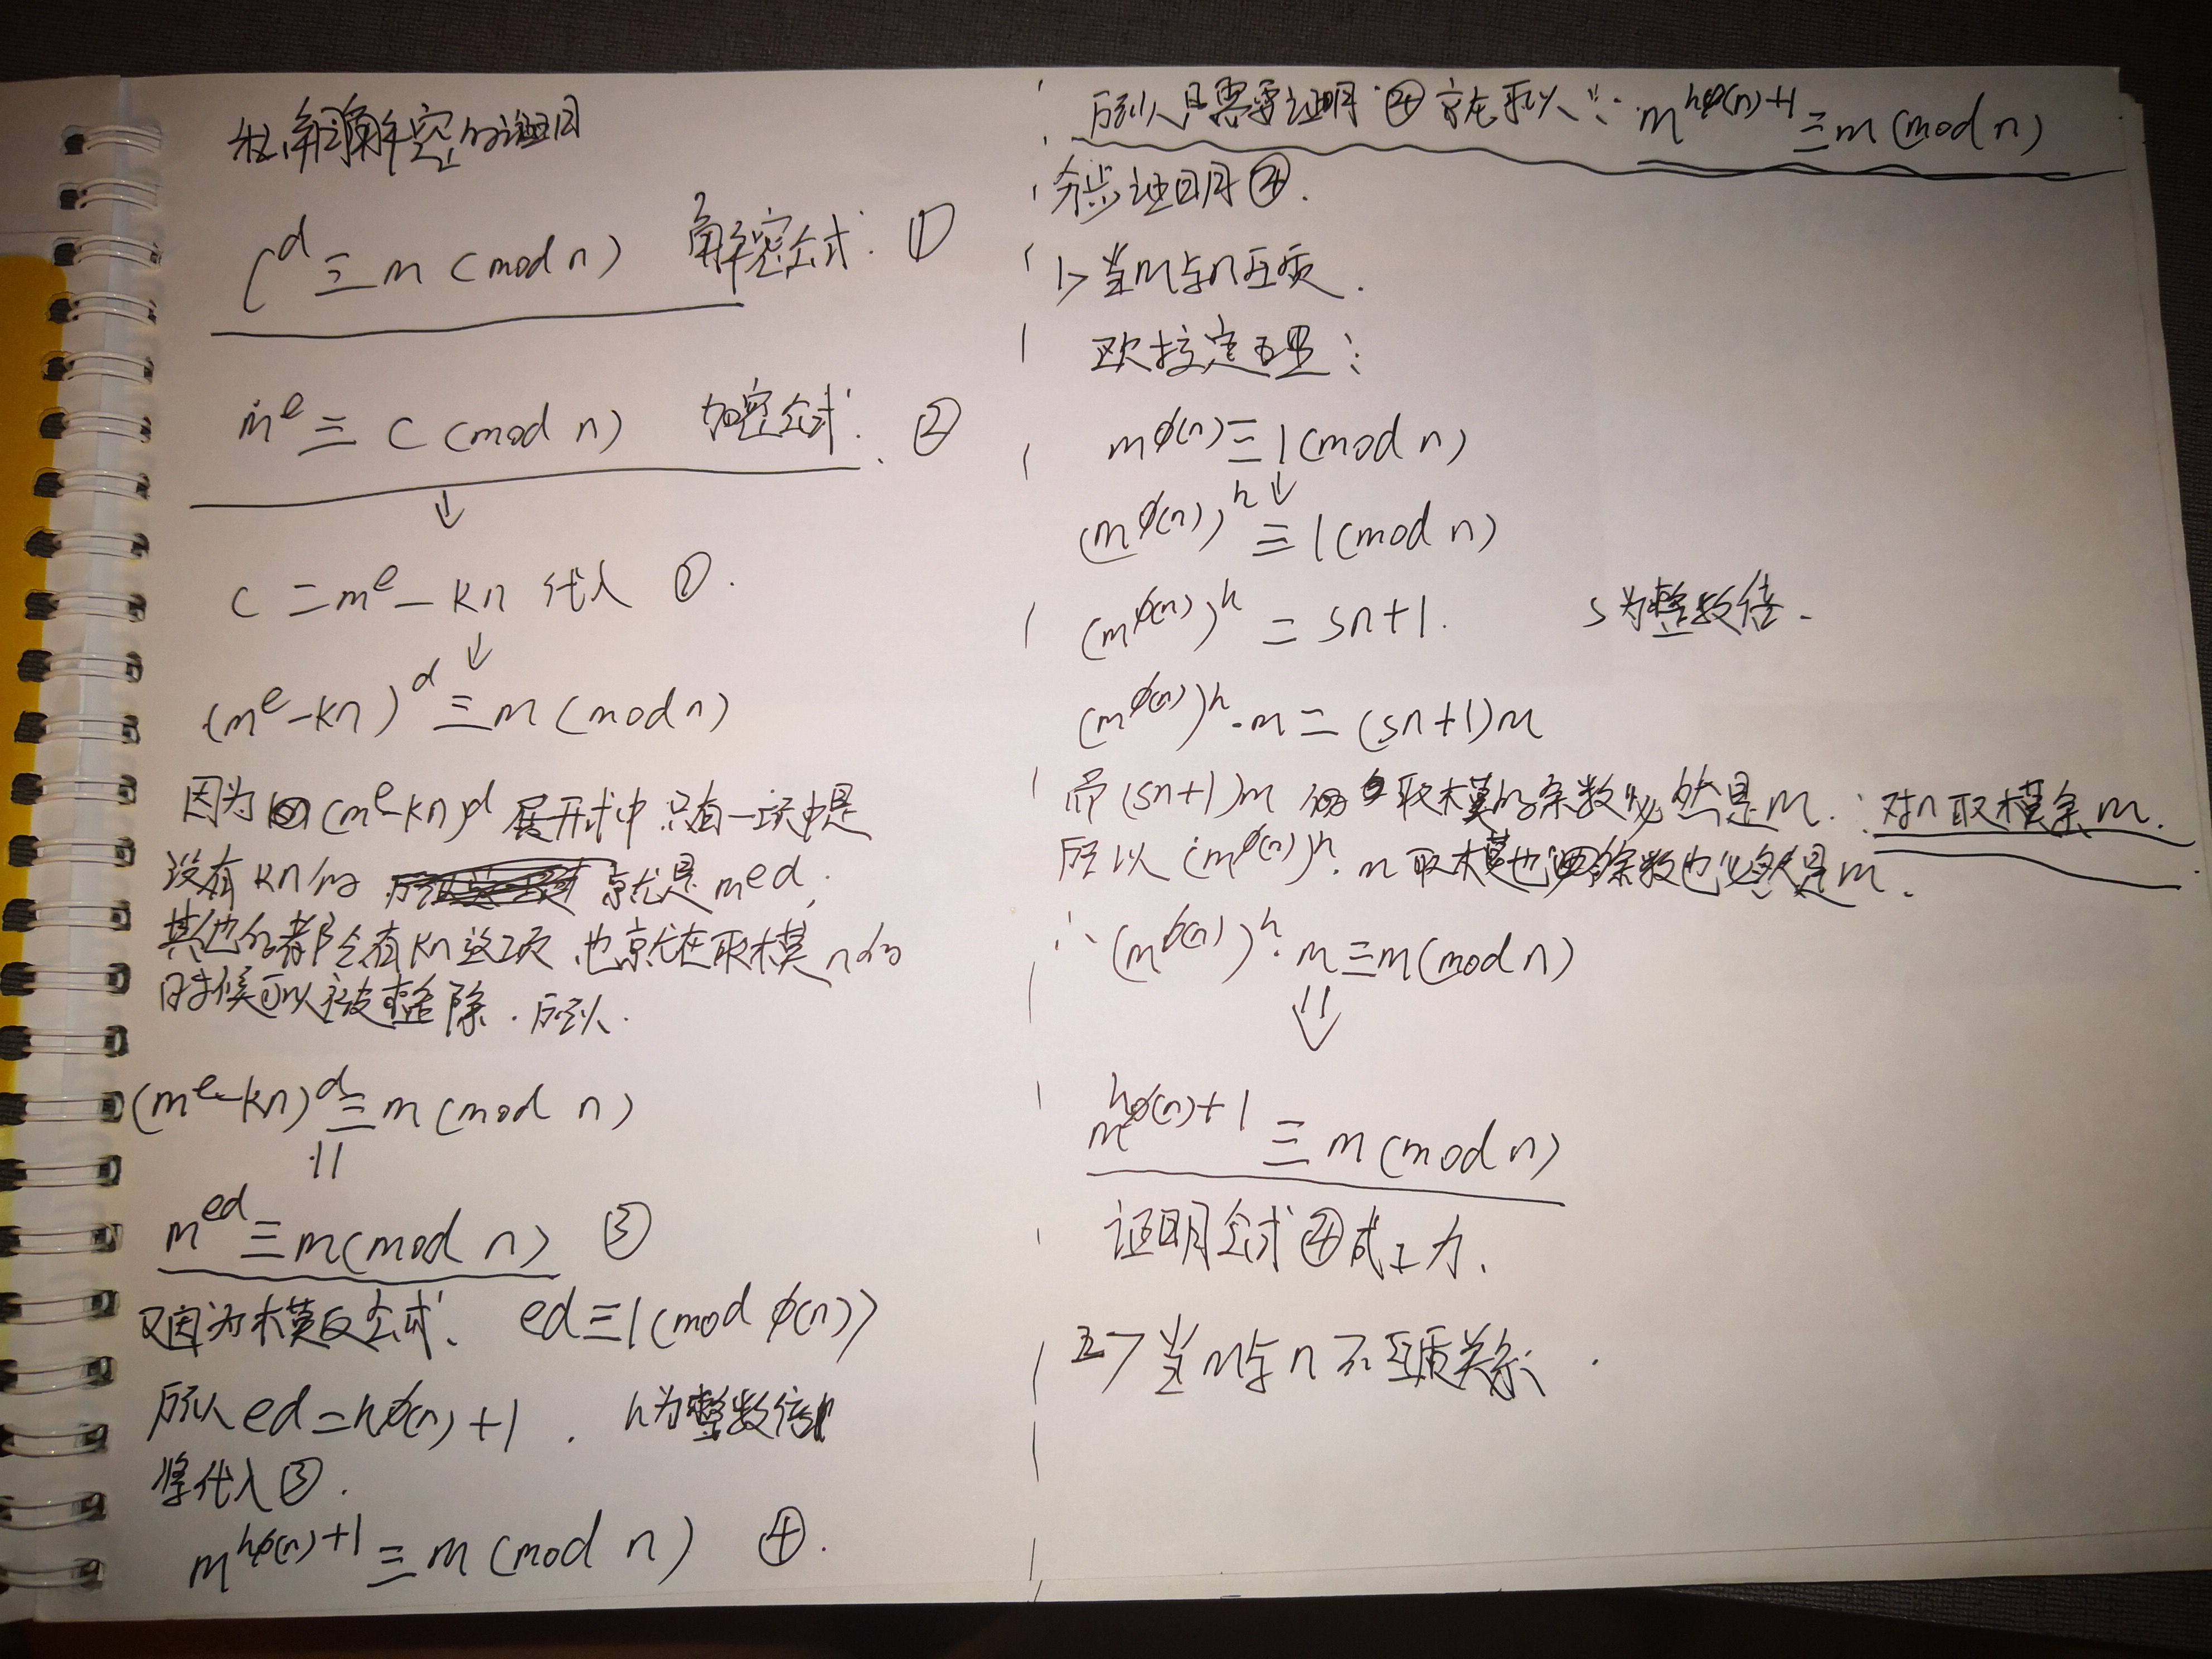 私钥解密的证明
c^d ≡ m (mod n) 解密公式. ①
m^e ≡ c (mod n) 加密公式. ②
↓
c = m^e - kn 代入 ①.
↓
(m^e - kn)^d ≡ m (mod n)
因为 (m^e - kn)^d 展开式中只有一项中是
没有 kn 的 就是 m^ed,
其他的都会有 kn 这项 也就在取模 n 的
时候可以被整除. 所以.
(m^e - kn)^d ≡ m (mod n)
||
m^ed ≡ m (mod n) ③
又因为模反公式. ed ≡ 1 (mod φ(n))
所以 ed = hφ(n) + 1. h为整数倍
将代入 ③.
m^hφ(n)+1 ≡ m (mod n) ④.
所以只需要证明 ④ 就可以: m^hφ(n)+1 ≡ m (mod n)
证明 ④.
1> 当m与n互质.
欧拉定理:
m^φ(n) ≡ 1 (mod n)
↓
(m^φ(n))^h ≡ 1 (mod n)
(m^φ(n))^h = sn+1. s为整数倍.
(m^φ(n))^h · m = (sn+1)m
而 (sn+1)m 取模的余数必然是m. 对n取模余m.
所以 (m^φ(n))^h · m 取模 余数也必然是m.
∴ (m^φ(n))^h · m ≡ m (mod n)
⇓
m^hφ(n)+1 ≡ m (mod n)
证明公式④成功.
2> 当m与n不互质关系.